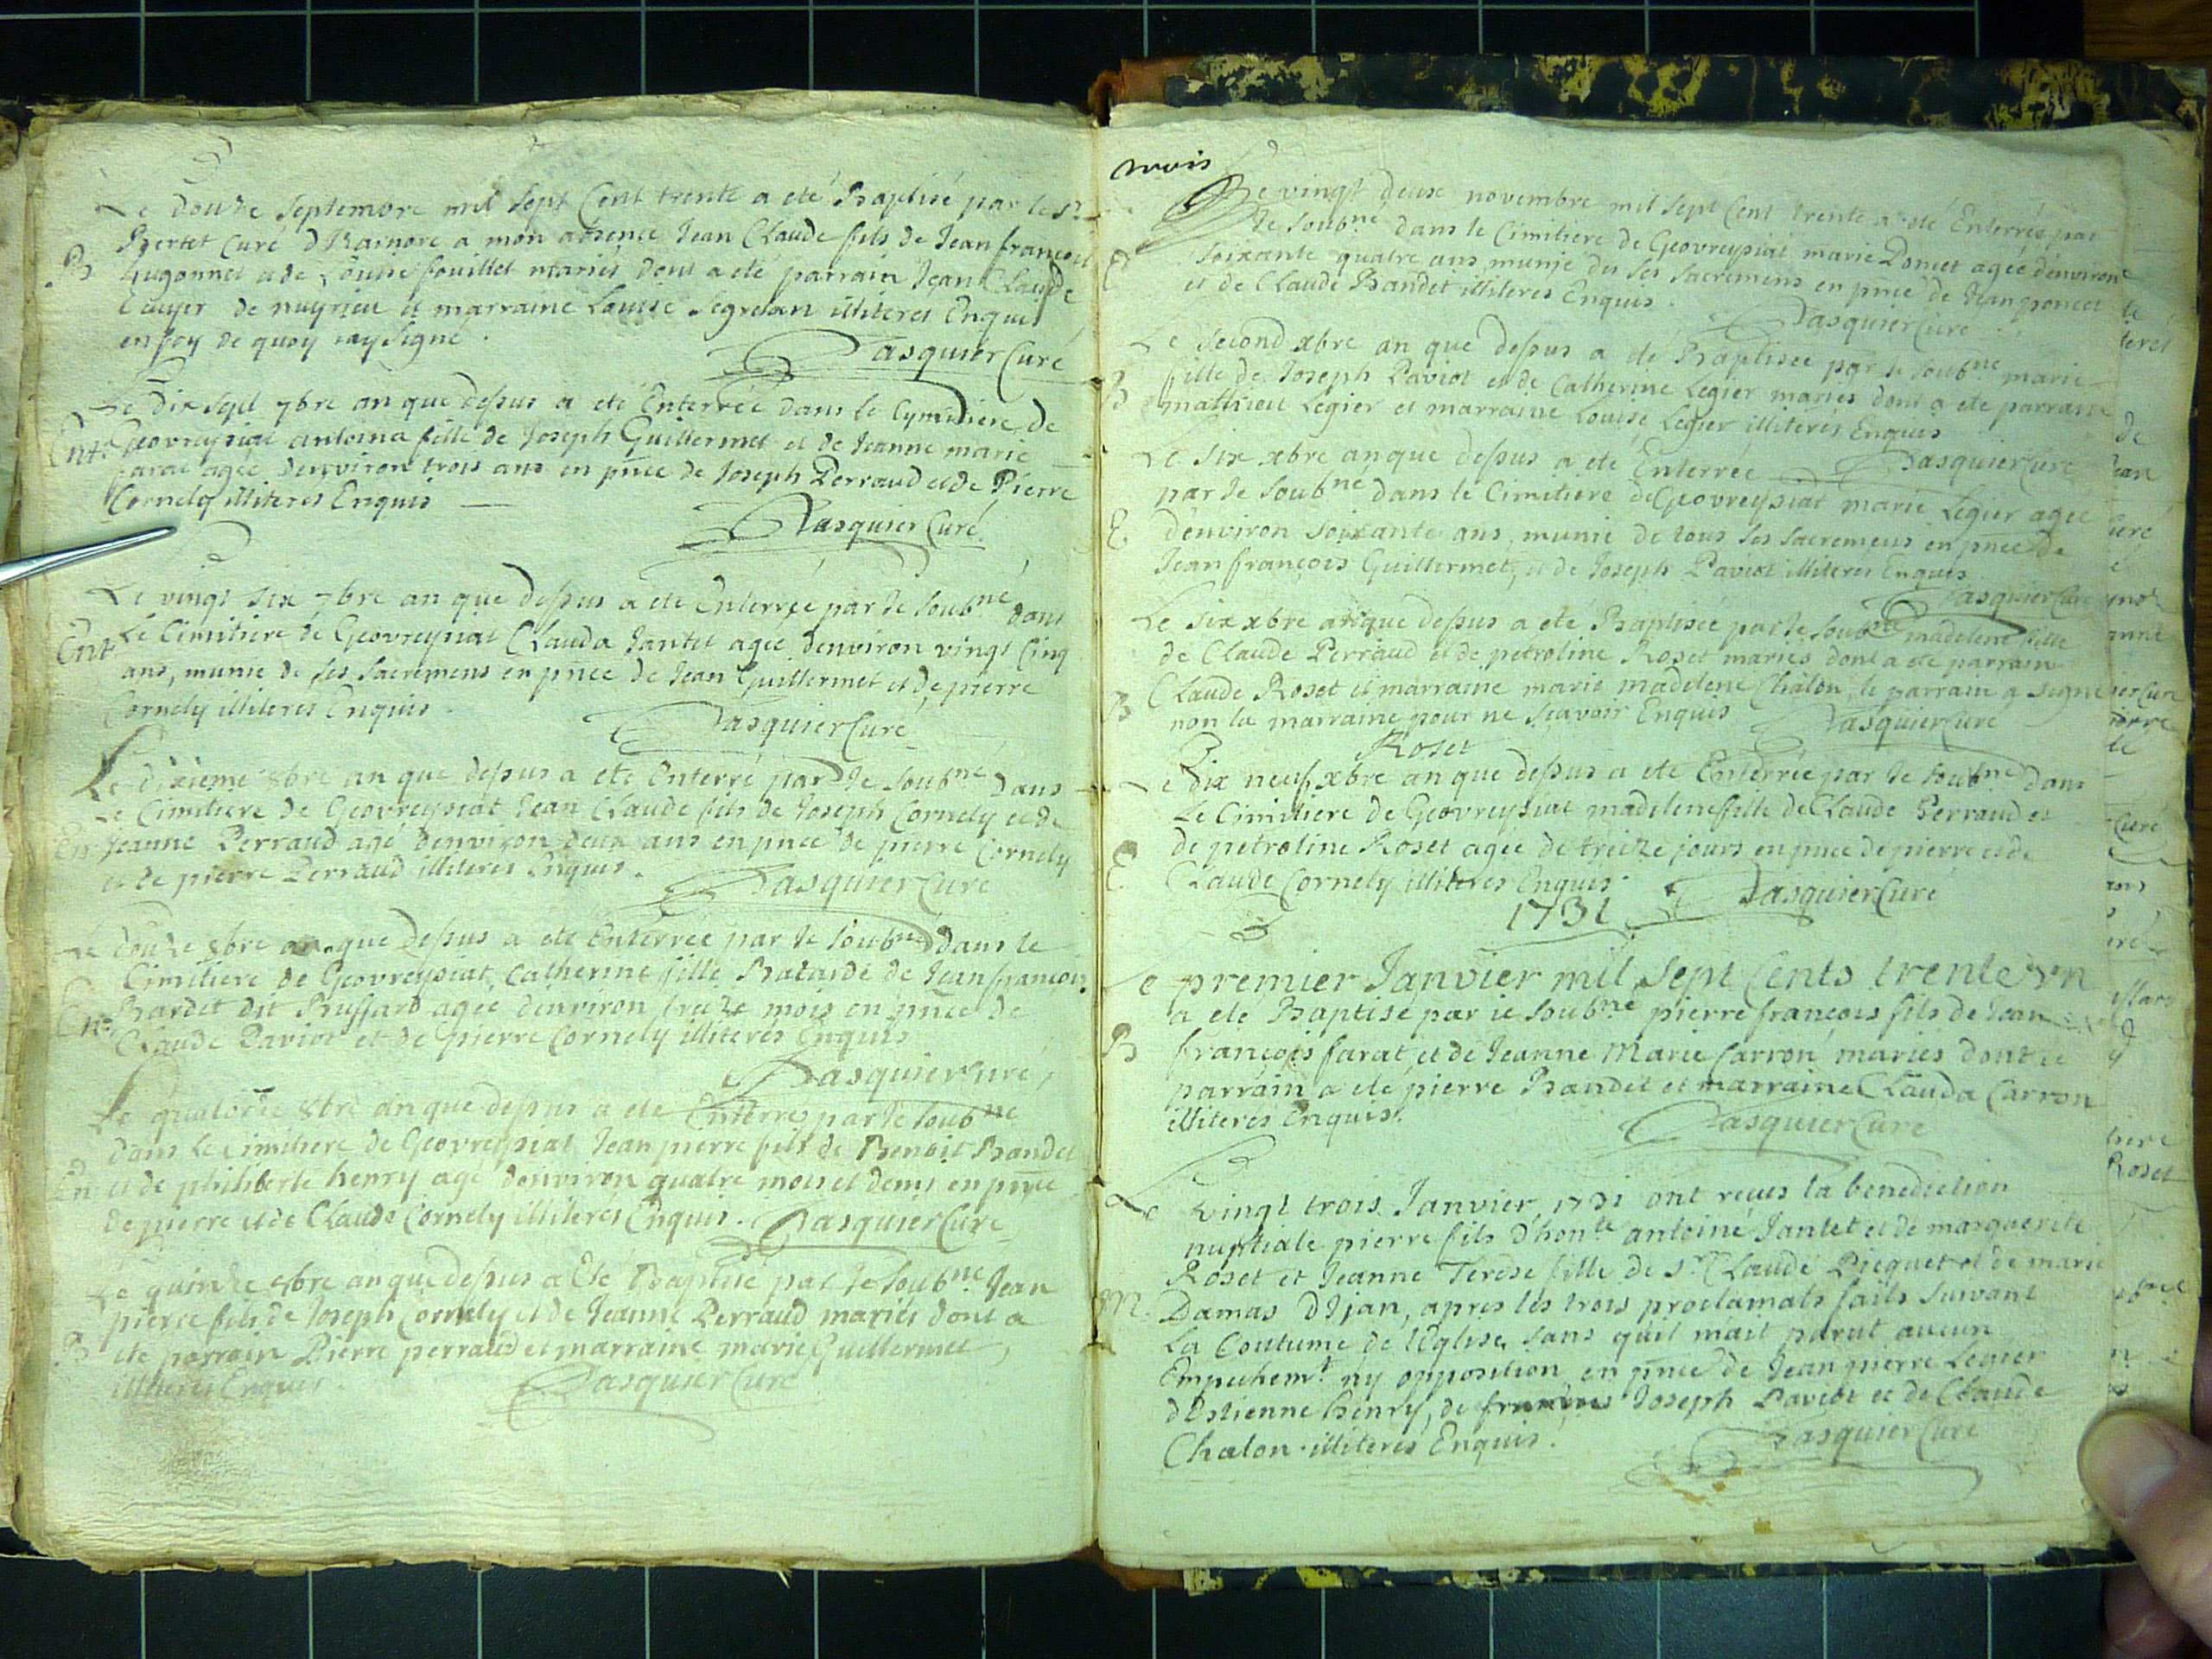 Le douze Septembre mil Sept Cent trente a eté Baptisé par le Sr
Bertet Curé d'Rainore a mon absence Jean Claude fils de Jean françois
B Gugonnet et de Louise fouillet mariés dont a été parrain Jean Claude
de nuyrieu et marraine Louise Segretan illiteres Enquis
en foy de quoy iay Signé.
Pasquier Curé
Le Dix Sept 7bre an que dessus a eté Enterrée dans le Cymitiere de
Ent. Geovreysiat antoina fille de Joseph Guillermet et de Jeanne marie
farat agée denviron trois ans en pnce de Joseph Perraud et de Pierre
Cornely illiteres Enquis
Pasquier Curé
Le vingt Six 7bre an que dessus a eté Enterrée par Je Soubné dans
Ent Le Cimitiere de Geovreysiat Clauda Jantet agée denviron vingt Cinq
ans, munie de ses Sacremens en pnce de Jean Guillermet et de pierre
Cornely illiteres Enquis.
Pasquier Curé
Le dixieme 8bre an que dessus a eté Enterré par Je Soubné Dans
Le Cimitiere de Geovreysiat Jean Claude fils de Joseph Cornely et de
En Jeanne Perraud agé denviron deux ans en pnce de pierre Cornely
et de pierre Perraud illiteres Enquis.
Pasquier Curé
Le douze 8bre an que Dessus a eté Enterrée par Je Soubné dans le
Cimitiere de Geovreysiat, Catherine fille Batarde de Jean françois
Ent. Bardet dit Bussard agée denviron treize mois en pnce de
Claude Paviot et de pierre Cornely illiteres Enquis
Pasquier Curé
Le quatorze 8bre an que dessus a eté Enterré par Je Soubné
dans Le Cimitiere de Geovreysiat Jean pierre fils de Benoit Bandet
En et de philiberte henry agé denviron quatre mois et demi en pnce
de pierre et de Claude Cornely illiterés Enquis. Pasquier Curé
Le quinze 8bre an que dessus a Eté Baptisé par Je Soubné Jean
pierre fils de Joseph Cornely et de Jeanne Perraud mariés dont a
B eté parrain Pierre perraud et marraine marie Guillermet
illiteres Enquis.
Pasquier Curé
trois
Le vingt deux novembre mil Sept Cent trente a eté Enterrée par
Je Soubné dans le Cimitiere de Geovreysiat marie Poncet agée denviron
E Soixante quatre ans munie de Ses Sacremens en pnce de Jean poncet
et de Claude Bandet illiteres Enquis.
Pasquier Curé
Le Second xbre an que dessus a eté Baptisée par Je Soubné marie
B fille de Joseph Paviot et de Catherine Legier mariés dont a eté parrain
mathieu Legier et marraine Louise Legier illiteres Enquis
Pasquier Curé
Le Six xbre an que dessus a eté Enterrée
par Je Soubné dans le Cimitiere de Geovreysiat marie Legier agée
E. d'environ Soixante ans, munie de tous Ses Sacremens en pnce de
Jean françois Guillermet, et de Joseph Paviot illiteres Enquis
Pasquier Curé
Le Six xbre an que dessus a eté Baptisée par Je Soubné madelene fille
de Claude Perraud et de petroline Roset mariés dont a eté parrain
B Claude Roset et marraine marie madelene Chalon, le parrain a Signé
non la marraine pour ne Sçavoir Enquis
Pasquier Curé
Roset
Le Dix neuf xbre an que dessus a eté Enterrée par Je Soubné Dans
Le Cimitiere de Geovreysiat madelene fille de Claude Perraud et
de petroline Roset agée de treize jours en pnce de pierre et de
E Claude Cornely illiteres Enquis.
Pasquier Curé
1731
Le premier Janvier mil Sept Cents trente Un
a eté Baptisé par ie Soubné pierre françois fils de Jean
B françois farat et de Jeanne Marie Carron mariés dont le
parrain a eté pierre Bandet et marraine Clauda Carron
illiteres Enquis.
Pasquier Curé
Le vingt trois Janvier 1731 ont reçus la benediction
nuptiale pierre fils d'honte antoine Jantet et de marguerite
Roset et Jeanne Terese fille de Sr Claude Picquet et de marie
M. Damas Dijan, apres les trois proclamats faits Suivant
La Coutume de l'Eglise, Sans qu'il m'ait parut aucun
Empechemt ny opposition en pnce de Jean pierre Legier
d'Estienne henry, de Joseph Paviot et de Claude
Chalon illiteres Enquis.
Pasquier Curé